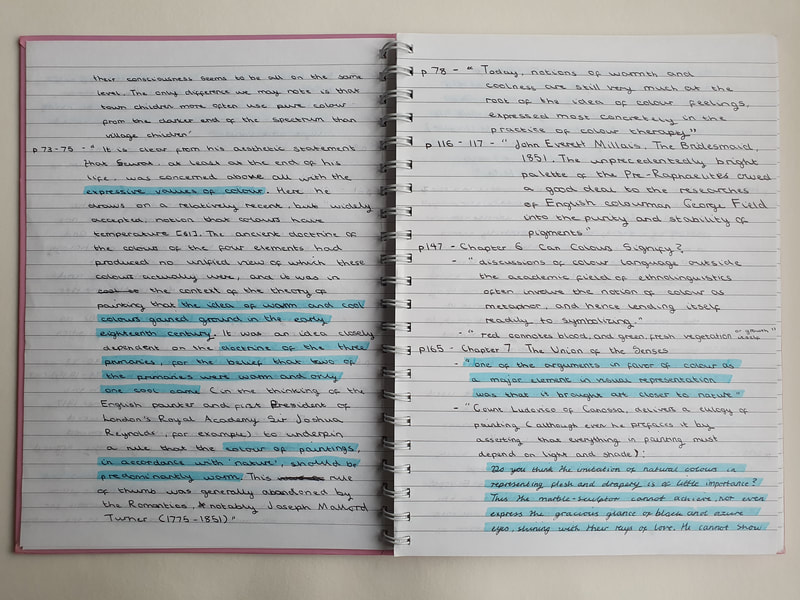 their consciousness seems to be all on the same
level. The only difference we may note is that
town children more often use pure colour
from the darker end of the spectrum than
village children'
p 73-75 - " It is clear from his aesthetic statement
that Seurat, at least at the end of his
life, was concerned above all with the
expressive values of colour. Here he
draws on a relatively recent, but widely
accepted, notion that colours have
temperature [61]. The ancient doctrine of
the colours of the four elements had
produced no unified view of which these
colours actually were, and it was in
the context of the theory of
painting that the idea of warm and cool
colours gained ground in the early
eighteenth century. It was an idea closely
dependent on the doctrine of the three
primaries, for the belief that two of
the primaries were warm and only
one cool came (in the thinking of the
English painter and first President of
London's Royal Academy Sir Joshua
Reynolds, for example) to underpin
a rule that the colour of paintings,
in accordance with nature', should be
predominantly warm. This rule
of thumb was generally abandoned by
the Romantics, notably Joseph Mallord
Turner (1775-1851)"
p 78 - " Today, notions of warmth and
coolness are still very much at the
root of the idea of colour feelings,
expressed most concretely in the
practice of colour therapy"
p 116 - 117 - " John Everett Millais, The Bridesmaid,
1851. The unprecedentedly bright
palette of the Pre-Raphaelites owed
a good deal to the researches
of English colourman George Field
into the purity and stability of
pigments"
p147 - Chapter 6 Can Colour Signify?
- " discussions of colour language outside
the academic field of ethnolinguistics
often involve the notion of colour as
metaphor, and hence lending itself
readily to symbolizing."
- " red connotes blood, and green, fresh vegetation or growth itself"
p165 - Chapter 7 The Union of the Senses
- " one of the arguments in favor of colour as
a major element in visual representation
was that it brought art closer to nature"
- " Count Ludovico of Canossa, delivers a eulogy of
painting (although even he prefaces it by
asserting that everything in painting must
depend on light and shade):
Do you think the imitation of natural colours in
representing flesh and drapery is of little importance?
This the marble-sculptor cannot achieve, nor even
express the gracious glance of black and azure
eyes, shining with their rays of love. He cannot show